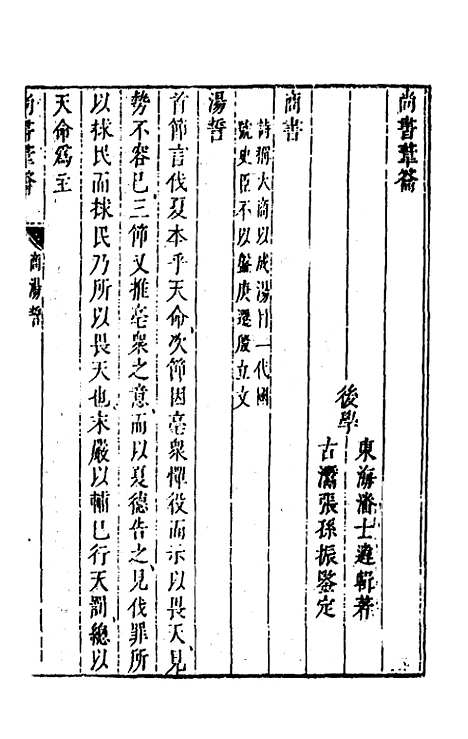 尚書葦籥
後學
東海潘士遴輯著
古灊張孫振鑒定
商書
詩稱大商以成湯有一代國
號史臣不以盤庚遷殷立文
湯誓
首節言伐夏本乎天命次節因亳衆憚役而示以畏天見
勢不容已三節又推亳衆之意而以夏德告之見伐罪所
以救民而救民乃所以畏天也末嚴以輔已行天罰總以
天命爲主
尚書葦籥
商湯誓